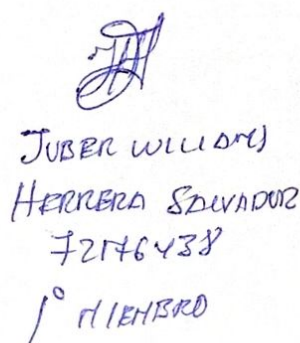 JUBER WILLIAMS
HERRERA SALVADOR
72176438
1° MIEMBRO